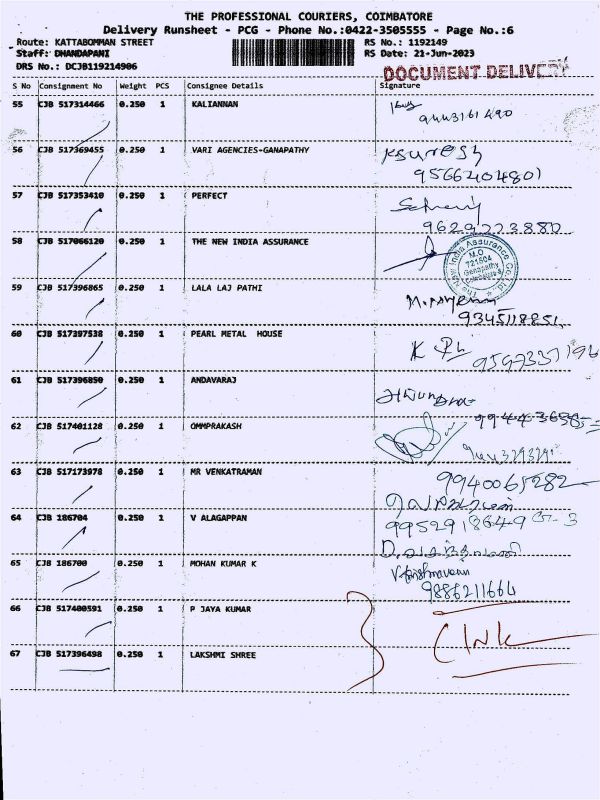 THE PROFESSIONAL COURIERS, COIMBATORE
Delivery Runsheet - PCG - Phone No.:0422-3505555 - Page No.:6
Route: KATTABOMMAN STREET RS No.: 1192149
Staff: DHANDAPANI RS Date: 21-Jun-2023
DRS No.: DCJB119214906
DOCUMENT DELIVERY
S No Consignment No Weight PCS Consignee Details Signature
55 CJB 517314466 0.250 1 KALIANNAN
56 CJB 517369455 0.250 1 VARI AGENCIES-GANAPATHY KSuresh
9566404801
57 CJB 517353410 0.250 1 PERFECT
9629773880
58 CJB 517066120 0.250 1 THE NEW INDIA ASSURANCE
The New India Assurance Co. Ltd.
M.O
721504
Ganapathy
59 CJB 517396865 0.250 1 LALA LAJ PATHI
9345118851
60 CJB 517397538 0.250 1 PEARL METAL HOUSE
61 CJB 517396850 0.250 1 ANDAVARAJ
62 CJB 517401128 0.250 1 OMMPRAKASH
63 CJB 517173978 0.250 1 MR VENKATRAMAN 9940065282
64 CJB 186704 0.250 1 V ALAGAPPAN 9952918649
65 CJB 186700 0.250 1 MOHAN KUMAR K
9886211664
66 CJB 517400591 0.250 1 P JAYA KUMAR
67 CJB 517396498 0.250 1 LAKSHMI SHREE